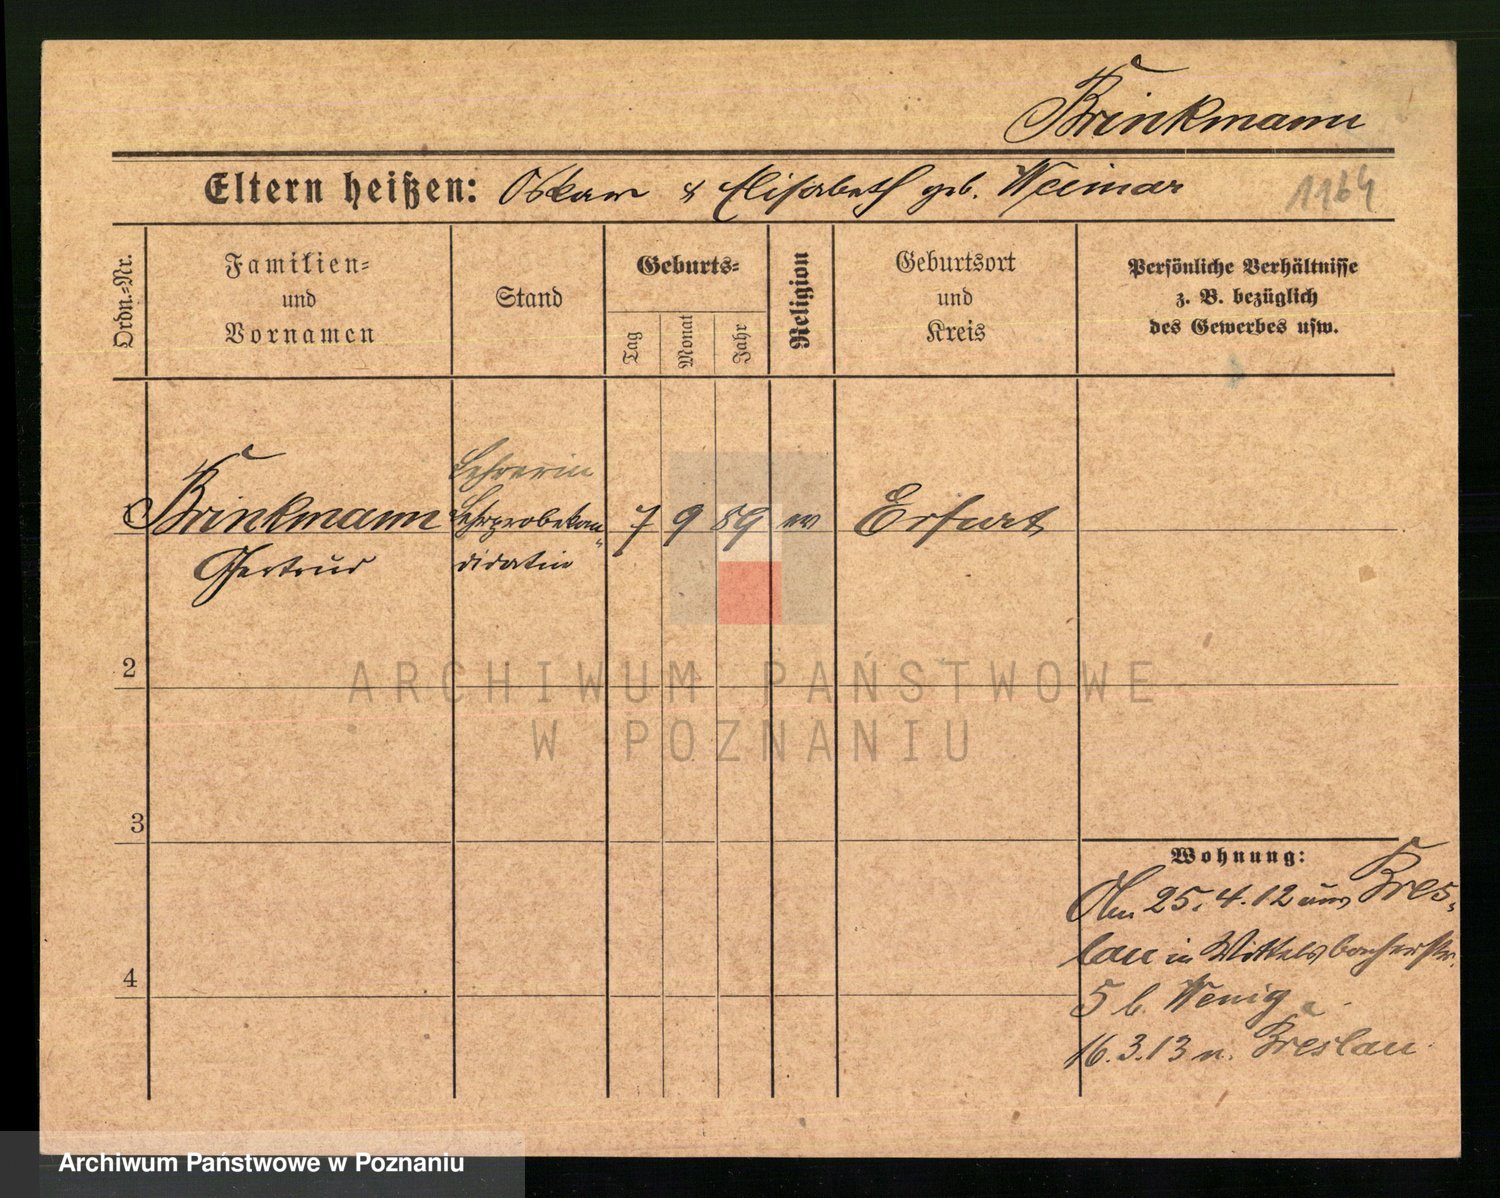 Brinkmann
Eltern heißen: Oskar & Elisabeth geb. Weimar 1164
Ordn.-Nr.
Familien-
und
Vornamen
Stand
Geburts-
Tag
Monat
Jahr
Religion
Geburtsort
und
Kreis
Persönliche Verhältnisse
z. B. bezüglich
des Gewerbes usw.
Lehrerin
Brinkmann Lehrprobekan- 7 9 89 ev Erfurt
Gertrud didatin
2
ARCHIWUM PAŃSTWOWE
W POZNANIU
3
Wohnung:
Am 25.4.12 aus Bres-
lau in Wittelsbacherstr.
5 b. Wenig
4
16.3.13 n. Breslau.
Archiwum Państwowe w Poznaniu